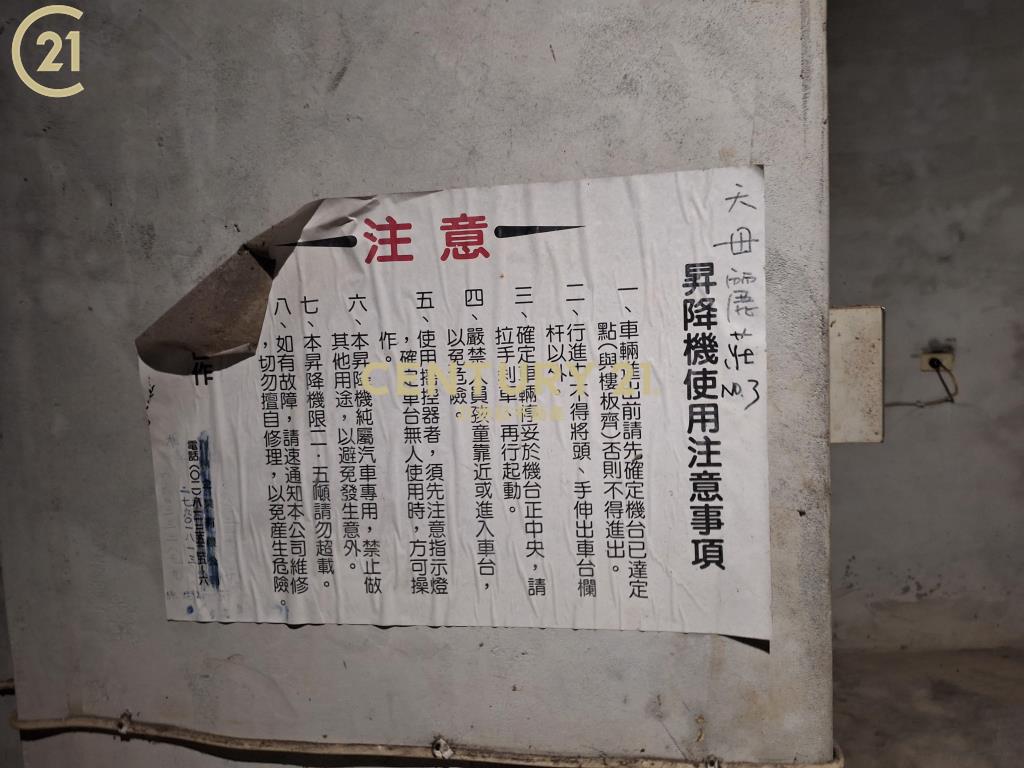 21
天母麗莊 NO.3
昇降機使用注意事項
注意
一、車輛進出前請先確定機台已達定
點（與樓板齊）否則不得進出。
二、行進中不得將頭、手伸出車台欄
杆以外
三、確定車輛停妥於機台正中央，請
拉手剎車，再行起動。
四、嚴禁人員孩童靠近或進入車台，
以免危險。
五、使用搖控器者，須先注意指示燈
，確定車台無人使用時，方可操
作。
六、本昇降機純屬汽車專用，禁止做
其他用途，以避免發生意外。
七、本昇降機限二．五噸請勿超載。
八、如有故障，請速通知本公司維修
，切勿擅自修理，以免產生危險。
作
電話
CENTURY 21